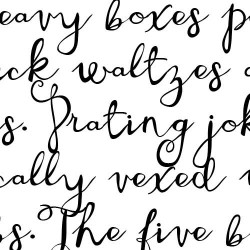 eavy boxes p
ck waltzes
s. Prating jok
cally vexed
s. The five b